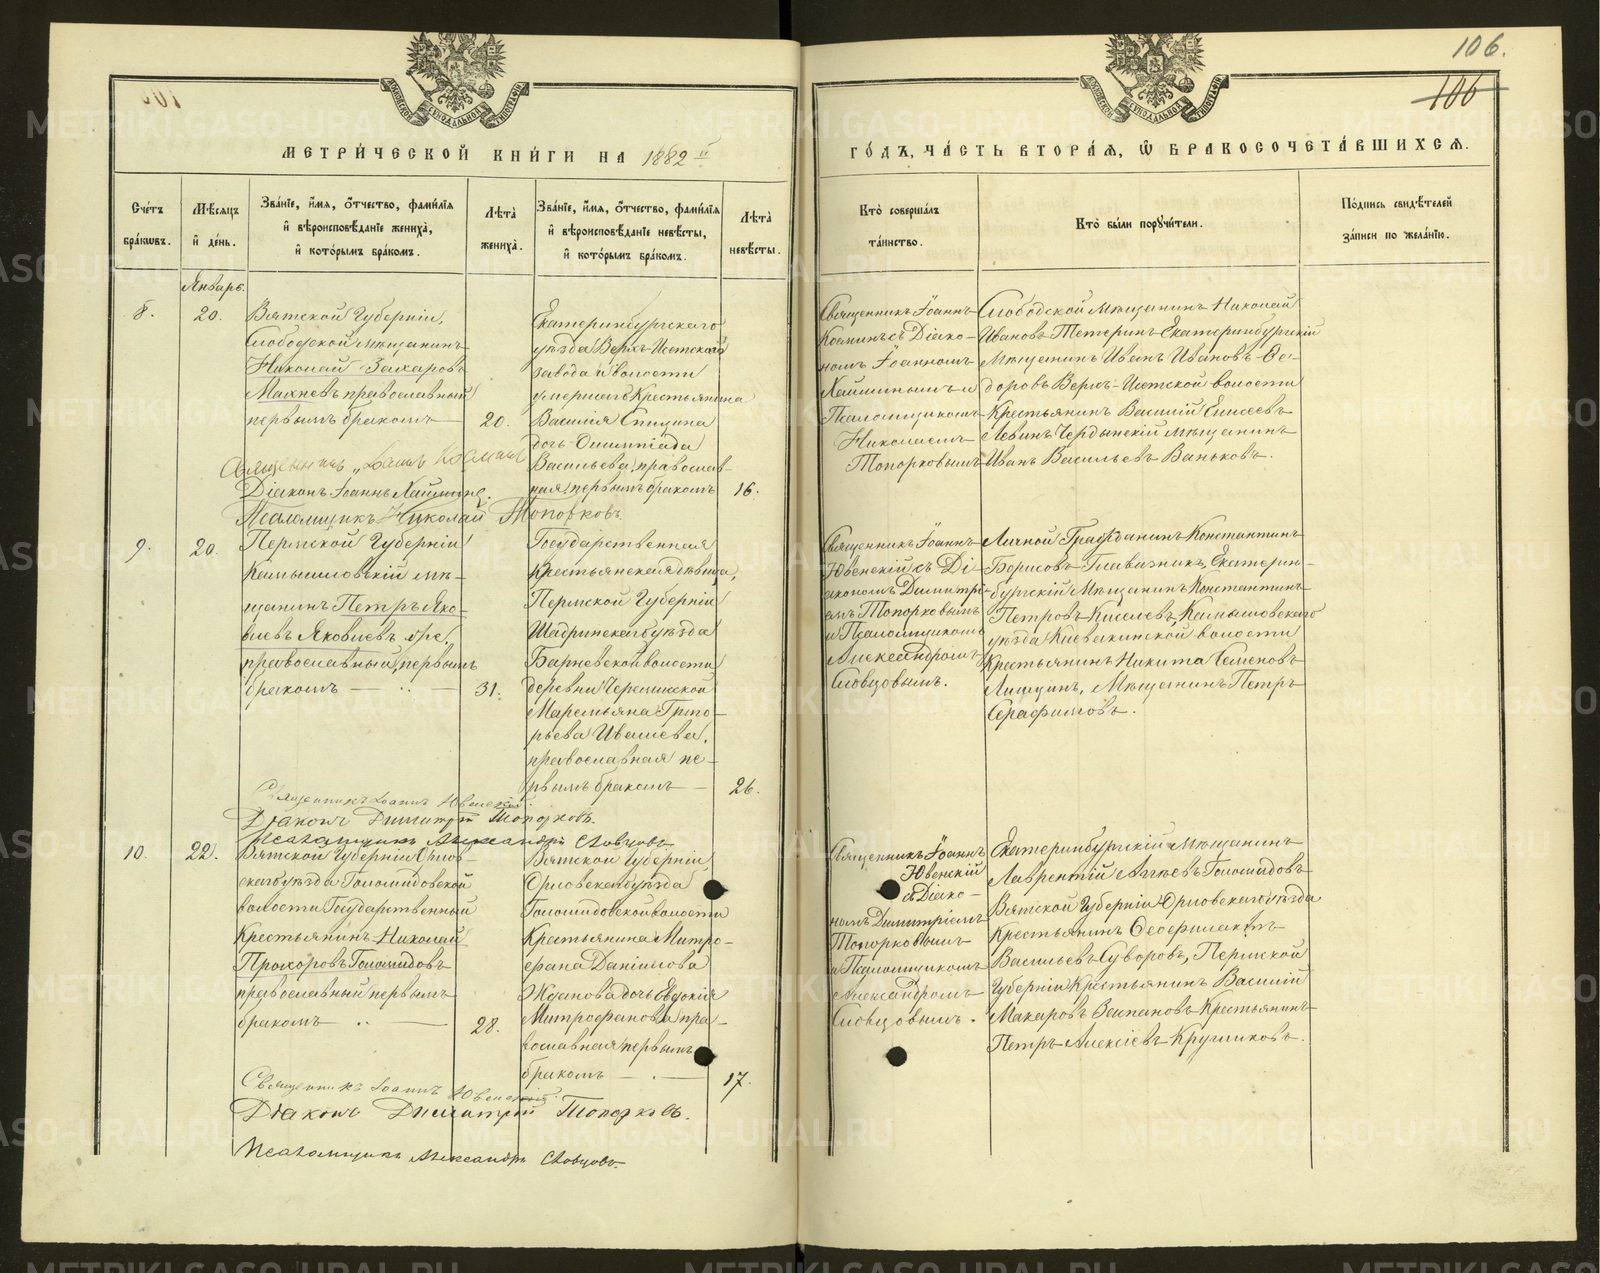 106.
106
МЕТРИ́ЧЕСКОЙ КНИ́ГИ НА 1882 й
ГО́ДЪ, ЧА́СТЬ ВТОРА́Я, Ѽ БРАКОСОЧЕТА́ВШИХСЯ.
Сче́тъ бра́кѡвъ.
Мѣ́сяцъ и҆ де́нь.
Зва́нїе, и҆́мя, о҆́тчество, фами́лїя
и҆ вѣроисповѣ́данїе жениха̀,
и҆ кото́рымъ бра́комъ.
Лѣ́та̀ жениха̀.
Зва́нїе, и҆́мя, о҆́тчество, фами́лїя
и҆ вѣроисповѣ́данїе невѣ́сты,
и҆ кото́рымъ бра́комъ.
Лѣ́та̀ невѣ́сты.
Кто̀ соверша́лъ
та́инство.
Кто̀ бы́ли порꙋчи́тели.
По́дпись свидѣ́телей
за́писи по жела́нїю.
Январь.
8.
20.
Вятской Губерніи,
Слободской мѣщанинъ
Николай Захаровъ
Махневъ православный
первымъ бракомъ
20.
Екатеринбургскаго
уѣзда Верхъ-Исетскаго
завода и волости
умершаго Крестьянина
Василія Спицина
дочь Олимпіада
Васильева, православ-
ная, первымъ бракомъ
16.
Священникъ Іоаннъ
Коминъ съ Діако-
номъ Іоанномъ
Хайминымъ и
Псаломщикомъ
Николаемъ
Топорковымъ
Слободской мѣщанинъ Николай
Ивановъ Тетеринъ Екатеринбургскій
Мѣщанинъ Иванъ Ивановъ Ѳе-
доровъ Верхъ-Исетской волости
Крестьянинъ Василій Елисеевъ
Левинъ Чердынскій мѣщанинъ
Иванъ Васильевъ Ваньковъ.
Діаконъ Іоаннъ Хайминъ.
Псаломщикъ Николай Топорковъ.
9.
20.
Пермской Губерніи
Камышловскій мѣ-
щанинъ Петръ Яко-
влевъ Яковлевъ
православный, первымъ
бракомъ
31.
Государственная
крестьянская дѣвица,
Пермской Губерніи
Шадринскаго уѣзда
Барневской волости
деревни Черемиской
Маремьяна Григо-
рьева Ивашева,
православная пе-
рвымъ бракомъ
26.
Священникъ Іоаннъ
Ювенскій съ Ді-
акономъ Димитрі-
емъ Топорковымъ
и Псаломщикомъ
Александромъ
Словцовымъ.
Личной Гражданинъ Константинъ
Борисовъ Главизникъ, Екатерин-
бургскій Мѣщанинъ Константинъ
Петровъ Киселевъ, Камышловскаго
уѣзда волости
Крестьянинъ Никита Семеновъ
Мѣщанинъ Петръ
Серафимовъ.
Священникъ Іоаннъ Ювенскій.
Діаконъ Димитрій Топорковъ.
Псаломщикъ Александръ Словцовъ
10.
22.
Вятской Губерніи Орлов-
скаго уѣзда Голошидовской
волости Государственный
Крестьянинъ Николай
Прохоровъ Голошидовъ
православный первымъ
бракомъ
28.
Вятской Губерніи
Орловскаго уѣзда
Голошидовской волости
Крестьянина Митро-
фана Даніилова
Жданова дочь Евдокія
Митрофанова пра-
вославная первымъ
бракомъ
17.
Священникъ Іоаннъ
Ювенскій
съ Діако-
номъ Димитріемъ
Топорковымъ
и Псаломщикомъ
Александромъ
Словцовымъ.
Екатеринбургскій Мѣщанинъ
Лаврентій Голошидовъ
Вятской Губерніи Орловскаго уѣзда
Крестьянинъ Ѳеофилактъ
Васильевъ Суворовъ, Пермской
Губерніи Крестьянинъ Василій
Макаровъ Крестьянинъ
Петръ Алексіевъ Кругликовъ.
Священникъ Іоаннъ Ювенскій.
Діаконъ Димитрій Топорковъ.
Псаломщикъ Александръ Словцовъ.